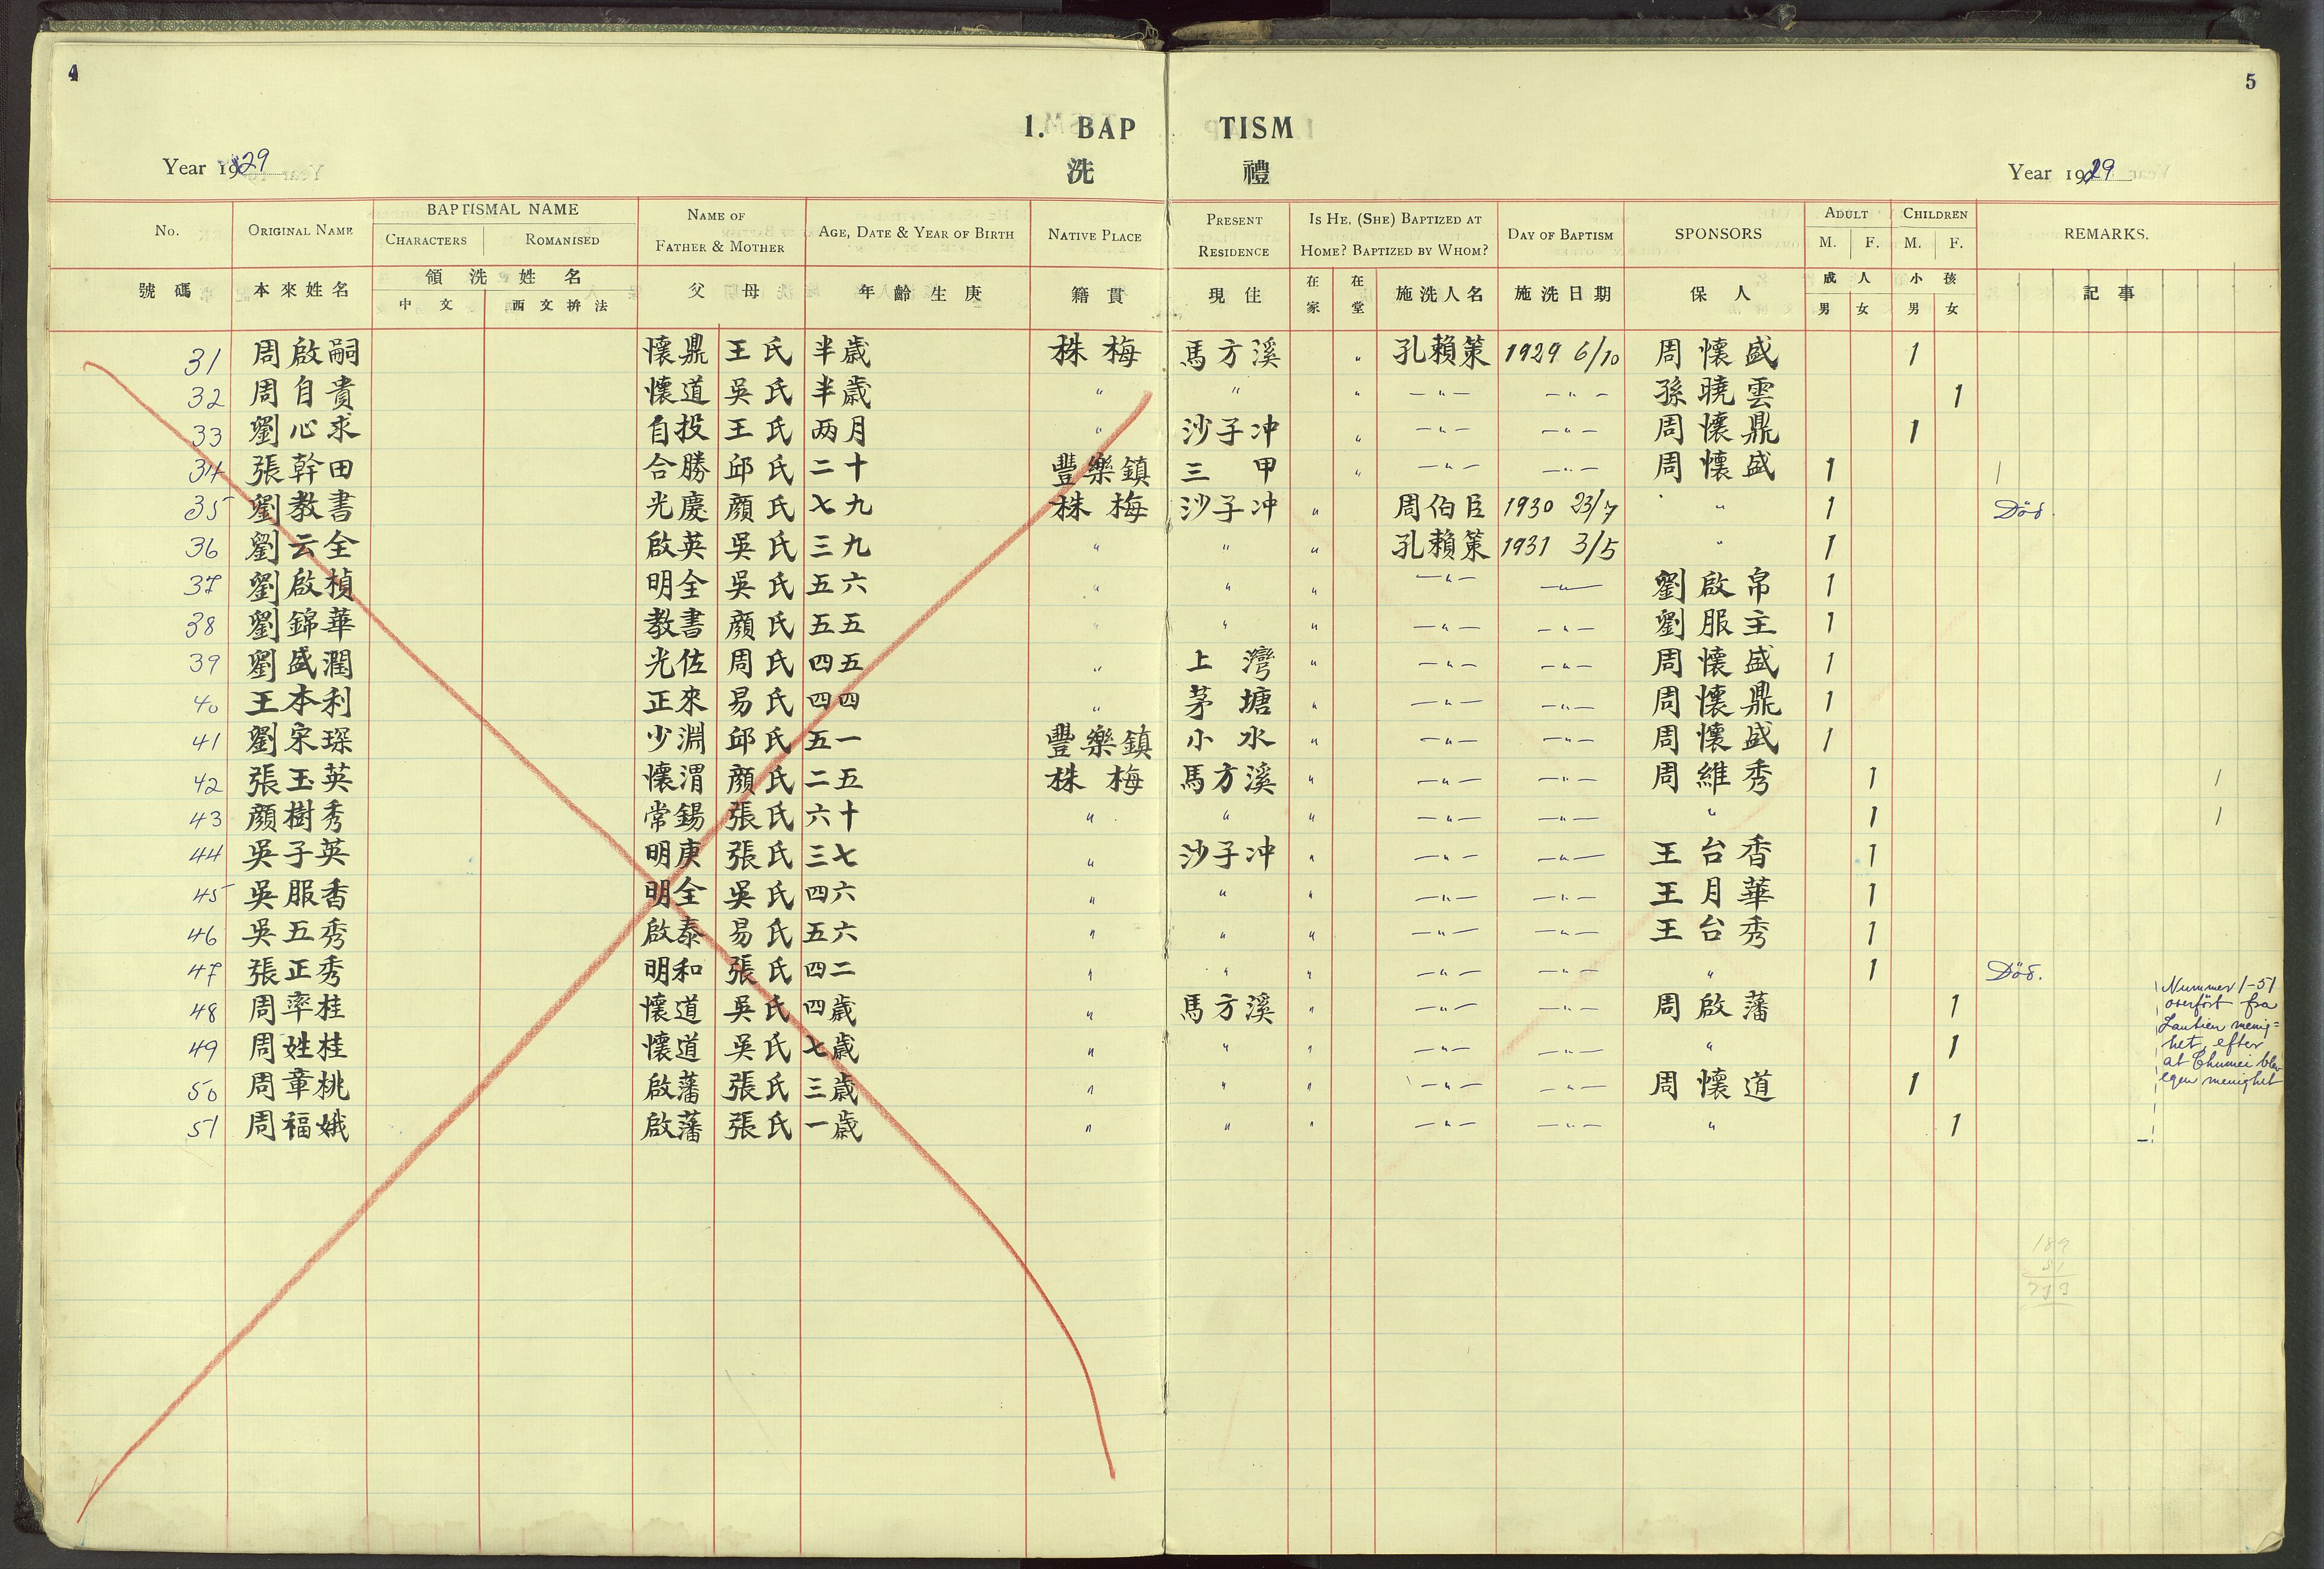 4
5
1. BAP TISM
洗 禮
Year 1929
Year 1929
No. ORIGINAL NAME BAPTISMAL NAME CHARACTERS ROMANISED NAME OF FATHER & MOTHER AGE, DATE & YEAR OF BIRTH NATIVE PLACE PRESENT RESIDENCE IS HE, (SHE) BAPTIZED AT HOME? BAPTIZED BY WHOM? DAY OF BAPTISM SPONSORS ADULT M. F. CHILDREN M. F. REMARKS.
號碼 本來姓名 領洗姓名 中文 西文拚法 父母 年齡生庚 籍貫 現住 在家 在堂 施洗人名 施洗日期 保人 成人 男 女 小孩 男 女 記事
31 周啟嗣 懷鼎 王氏 半歲 株梅 馬方溪 " 孔賴策 1929 6/10 周懷盛 1
32 周自貴 懷道 吳氏 半歲 " " " -"- -"- 孫曉雲 1
33 劉心求 自投 王氏 两月 " 沙子冲 " -"- -"- 周懷鼎 1
34 張幹田 合勝 邱氏 二十 豐樂鎮 三甲 " -"- -"- 周懷盛 1 |
35 劉教書 光慶 顏氏 七九 株梅 沙子冲 " 周伯臣 1930 23/7 " 1 Död.
36 劉云全 啟英 吳氏 三九 " " " 孔賴策 1931 3/5 " 1
37 劉啟楨 明全 吳氏 五六 " " " -"- -"- 劉啟帛 1
38 劉錦華 教書 顏氏 五五 " " " -"- -"- 劉服主 1
39 劉盛潤 光佐 周氏 四五 " 上灣 " -"- -"- 周懷盛 1
40 王本利 正來 易氏 四四 " 茅塘 " -"- -"- 周懷鼎 1
41 劉宋琛 少淵 邱氏 五一 豐樂鎮 小水 " -"- -"- 周懷盛 1
42 張玉英 懷渭 顏氏 二五 株梅 馬方溪 " -"- -"- 周維秀 1 |
43 顏樹秀 常錫 張氏 六十 " " " -"- -"- " 1 |
44 吳子英 明庚 張氏 三七 " 沙子冲 " -"- -"- 王台香 1
45 吳服香 明全 吳氏 四六 " " " -"- -"- 王月華 1
46 吳五秀 啟泰 易氏 五六 " " " -"- -"- 王台秀 1
47 張正秀 明和 張氏 四二 " " " -"- -"- " 1 Död.
48 周率桂 懷道 吳氏 四歲 " 馬方溪 " -"- -"- 周啟藩 1
49 周姓桂 懷道 吳氏 七歲 " " " -"- -"- " 1
50 周章桃 啟藩 張氏 三歲 " " " -"- -"- 周懷道 1
51 周福娥 啟藩 張氏 一歲 " " " -"- -"- " 1
Nummer 1-51
overfört fra
Lantien menig=
het, efter
at Chumei blev
egen menighet